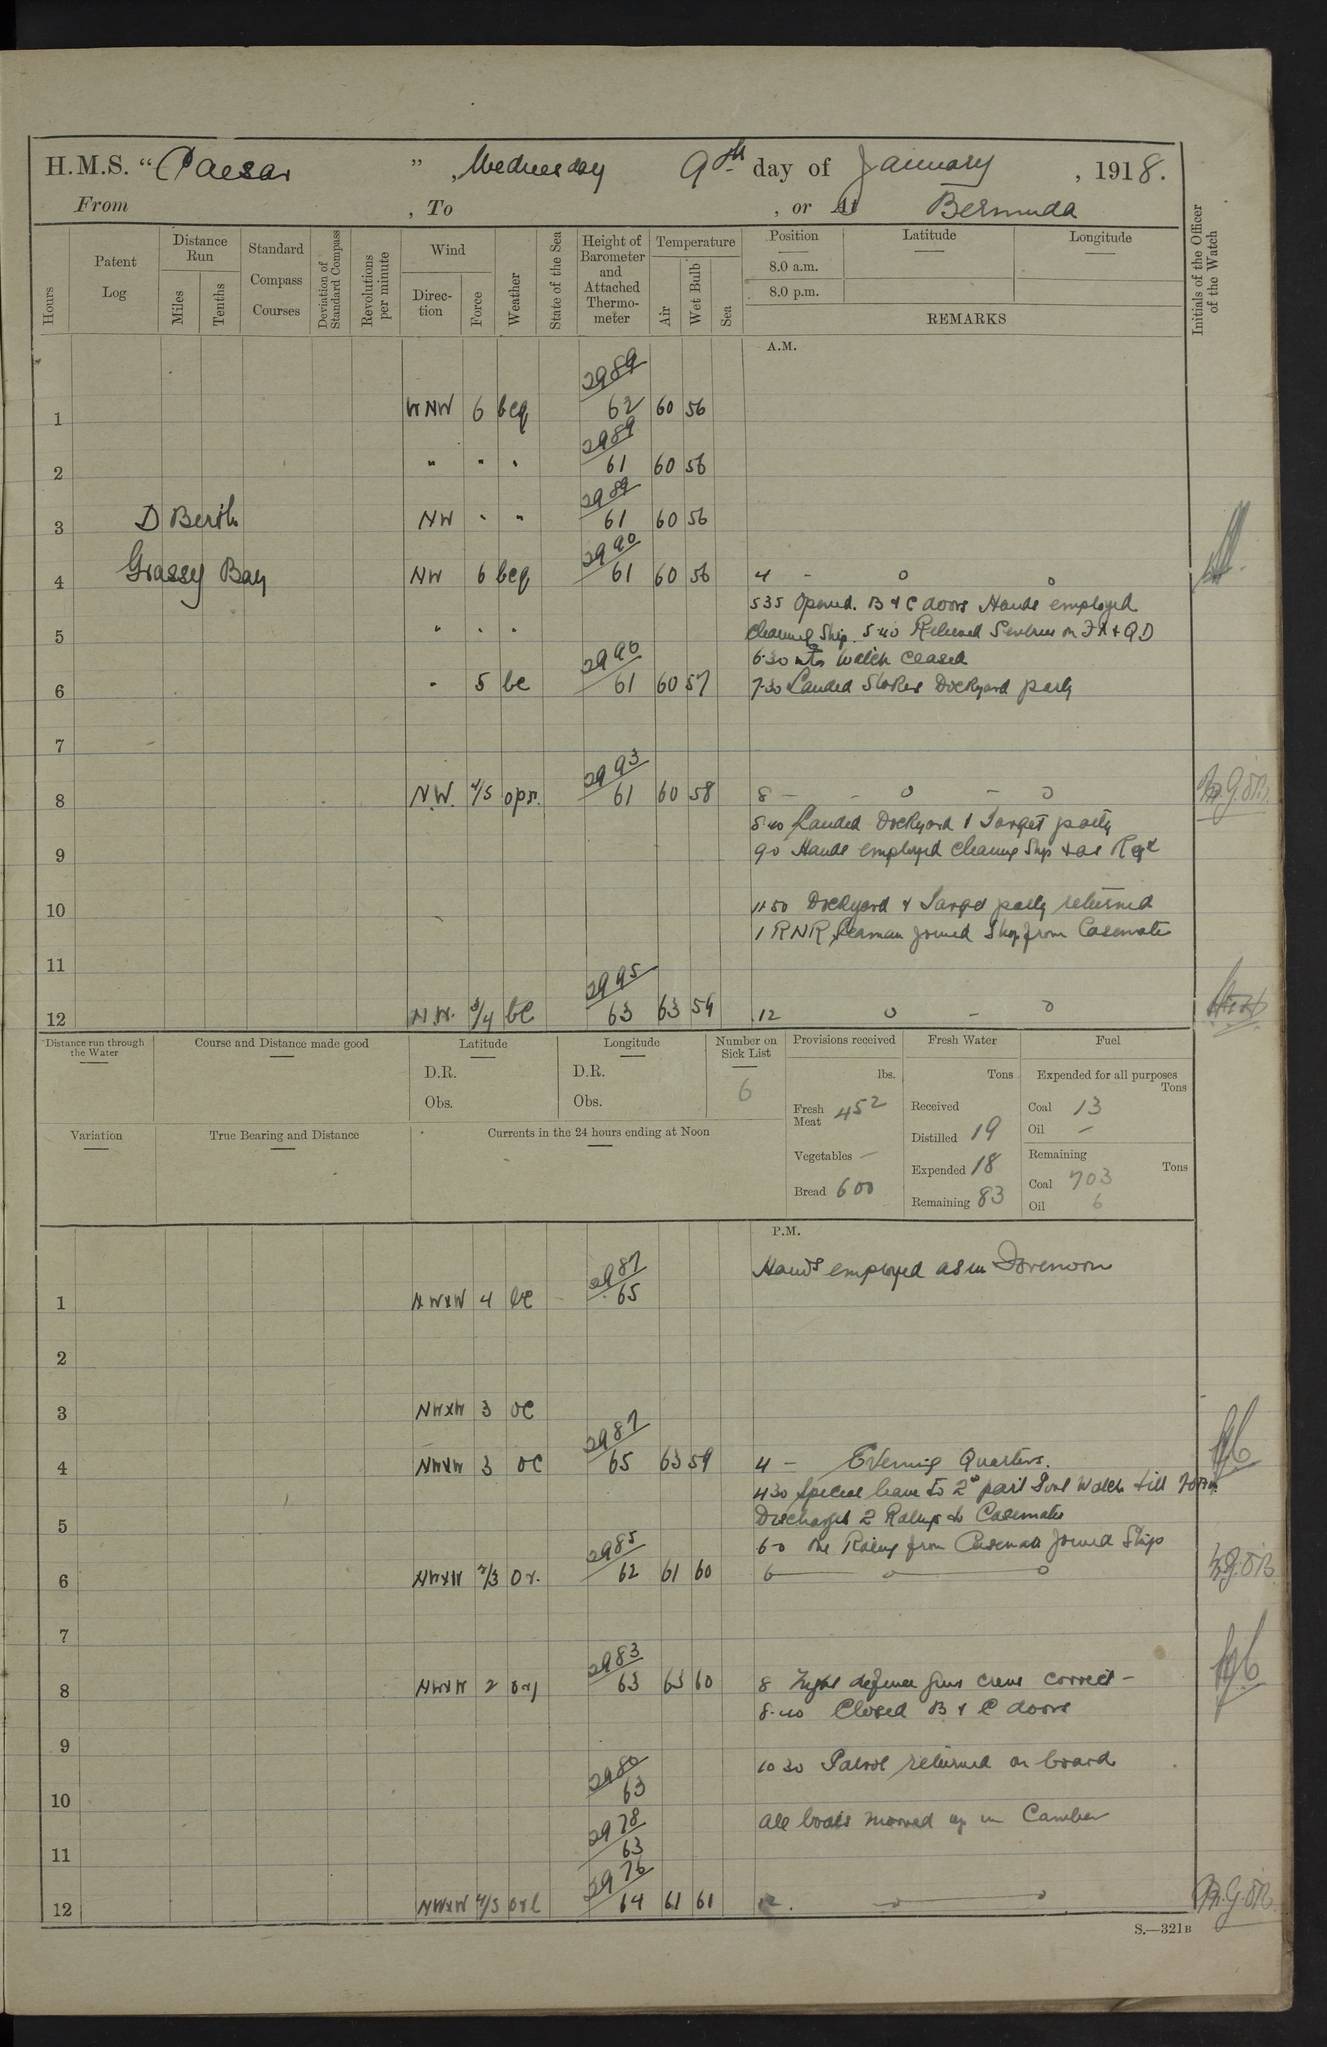 H.M.S. "Caesar", Wednesday 9th day of January, 1918.
From , To , or At Bermuda
Hours
Patent Log
Distance Run
Miles
Tenths
Standard Compass Courses
Deviation of Standard Compass
Revolutions per minute
Wind
Direction
Force
Weather
State of the Sea
Height of Barometer and Attached Thermometer
Temperature
Air
Wet Bulb
Sea
Position
8.0 a.m.
8.0 p.m.
Latitude
Longitude
REMARKS
Initials of the Officer of the Watch
A.M.
1 WNW 6 bcq 2989/62 60 56
2 " " " 2989/61 60 56
3 D Berth NW " " 2989/61 60 56
4 Grassy Bay NW 6 bcq 2990/61 60 56 4 - o o
535 Opened B & C doors Hands employed
5 " " " cleaning Ship. 5.40 Relieved Sentries on FX & QD
6.30 Watch ceased
6 " 5 bc 2990/61 60 57 7.30 Landed Stokes Dockyard party
7
8 N.W. 4/5 opr. 2993/61 60 58 8 - - o - o
8.40 Landed Dockyard & Target party
9 90 Hands employed cleaning Ship & as Reqd
10 11.50 Dockyard & Target party returned
1 RNR Seaman joined Ship from Casemate
11
12 N.W. 3/4 bc 2995/63 63 59 12 o - o
Distance run through the Water
Course and Distance made good
Latitude
D.R.
Obs.
Longitude
D.R.
Obs.
Number on Sick List
6
Provisions received
lbs.
Fresh Meat 452
Vegetables —
Bread 600
Fresh Water
Tons
Received
Distilled 19
Expended 18
Remaining 83
Fuel
Expended for all purposes
Tons
Coal 13
Oil —
Remaining
Tons
Coal 703
Oil 6
Variation
True Bearing and Distance
Currents in the 24 hours ending at Noon
P.M.
Hands employed as in Forenoon
1 NWxW 4 bc 2987/65
2
3 NWxW 3 oc
4 NWxW 3 oc 2987/65 63 59 4 - Evening Quarters.
430 Special leave to 2d part Watch till
5 Discharged 2 Ratings to Casemates
6.0 One Rating from Casemate joined Ship
6 NWxW 2/3 or. 2985/62 61 60 6 o o
7
8 NWxW 2 2983/63 63 60 8 Night defence guns crews correct -
8.40 Closed B & C doors
9
10 30 Patrol returned on board
10 2980/63
all boats moored up in Camber
11 2978/63
12 NWxW 4/5 orl 2976/64 61 61 12. o o
S.—321B